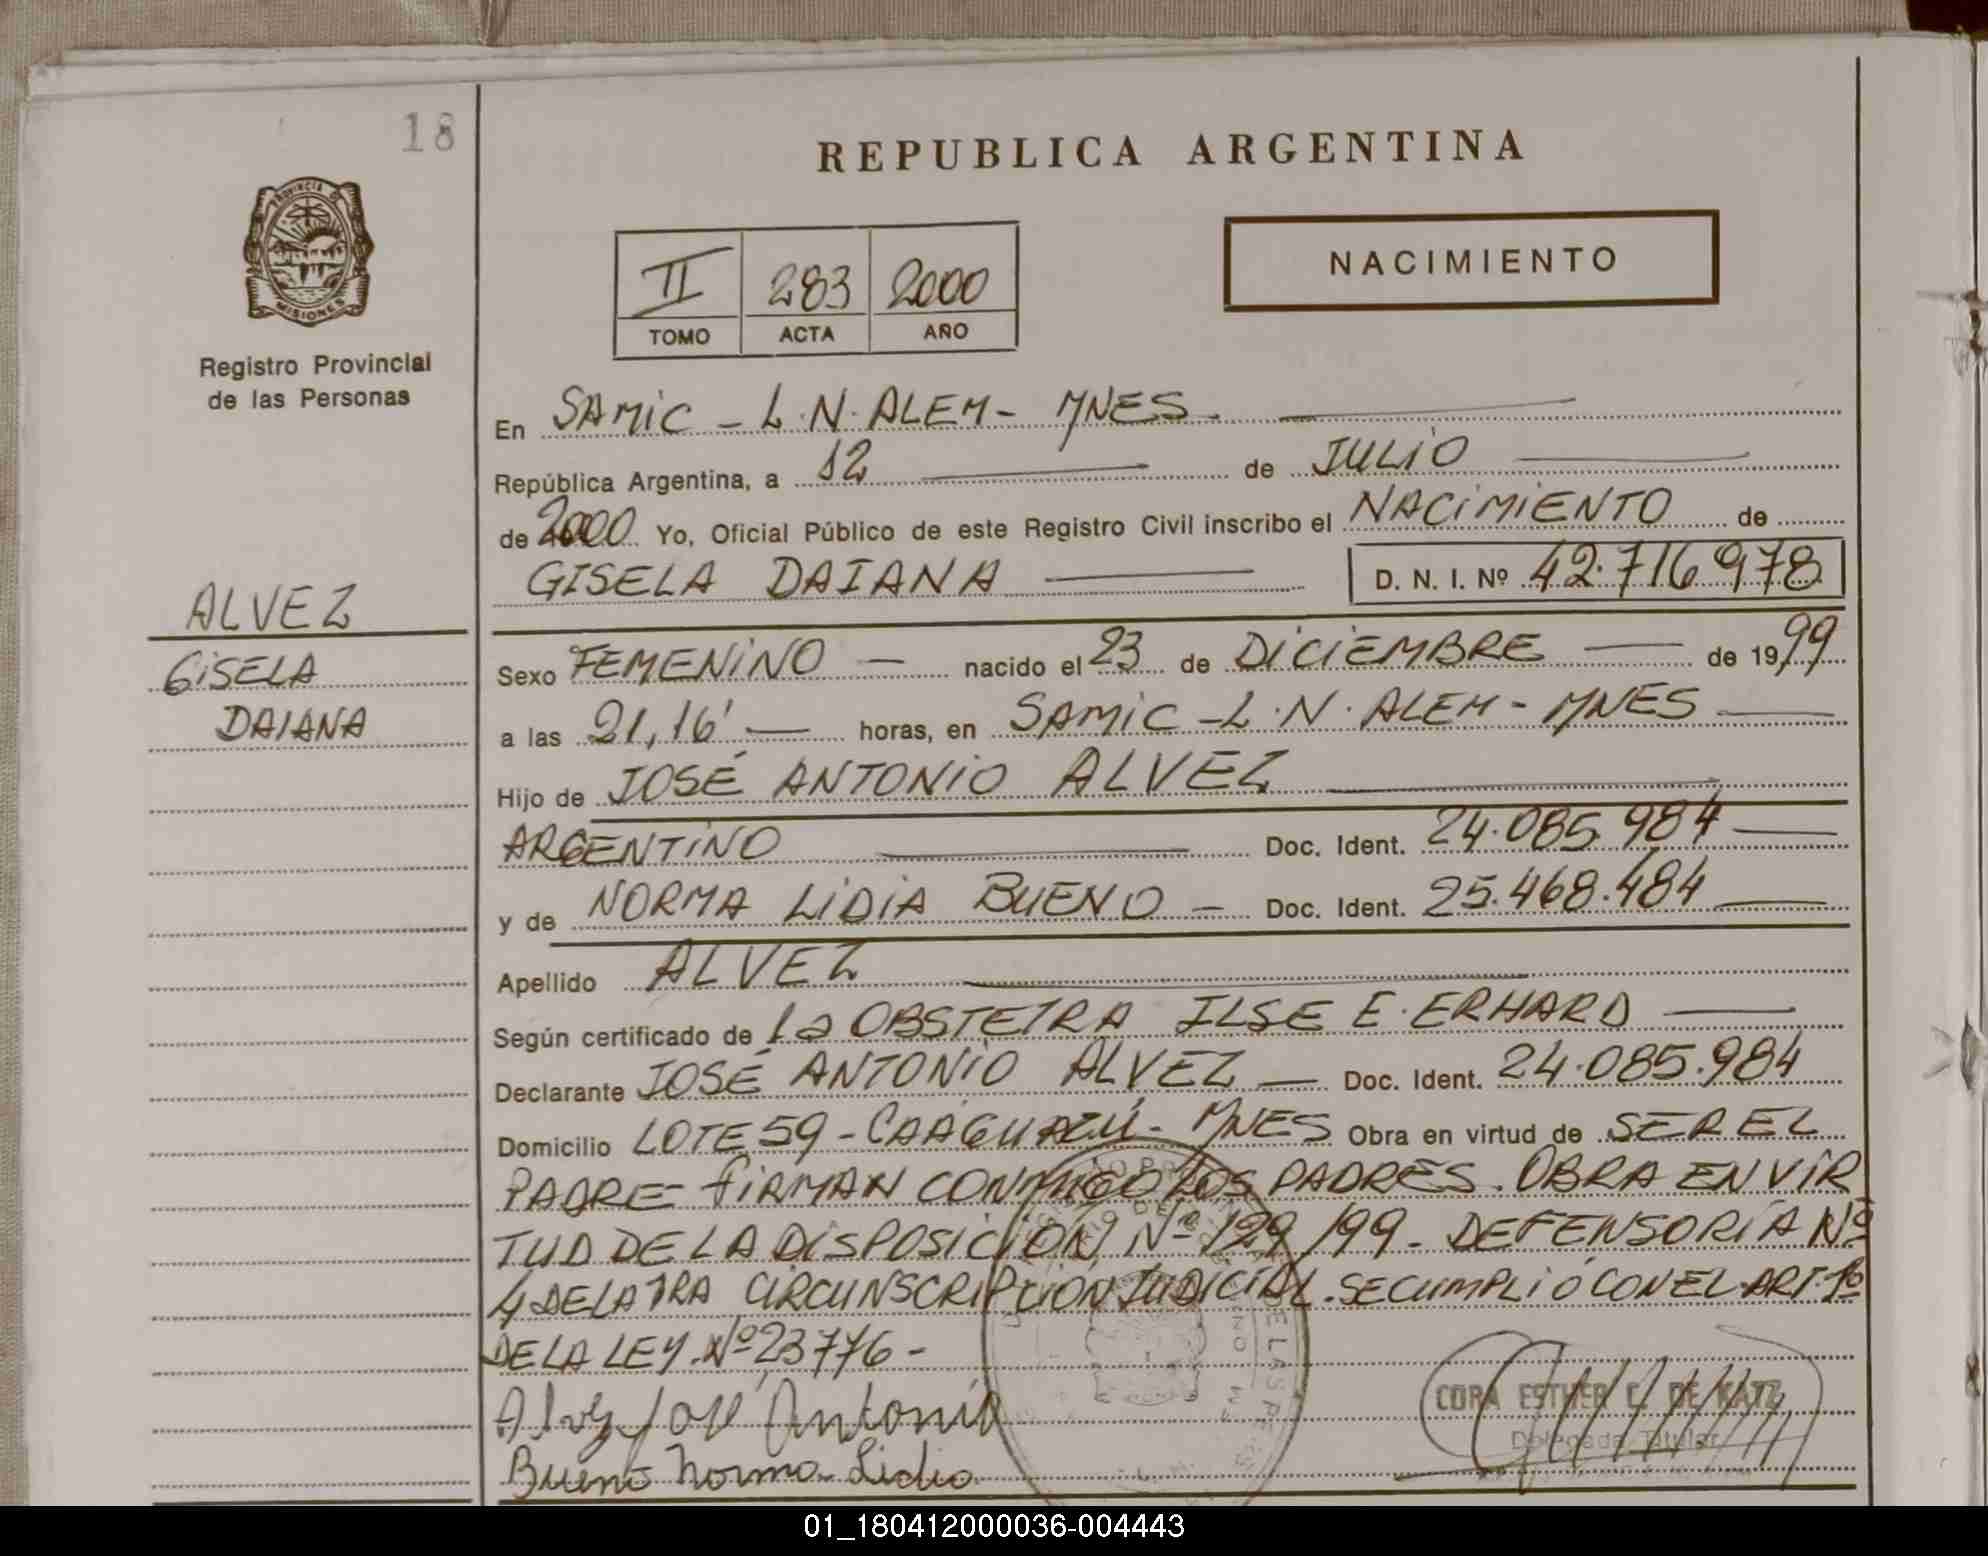 18
REPUBLICA ARGENTINA
PROVINCIA DE
MISIONES
Registro Provincial
de las Personas
II 283 2000
TOMO ACTA AÑO
NACIMIENTO
En SAMIC - L.N. ALEM - MNES.
República Argentina, a 12 de JULIO
de 2000 Yo, Oficial Público de este Registro Civil inscribo el NACIMIENTO de
GISELA DAIANA D. N. I. Nº 42.716.978
ALVEZ
GISELA
DAIANA
Sexo FEMENINO nacido el 23 de DICIEMBRE de 1999
a las 21,16' horas, en SAMIC - L.N. ALEM - MNES
Hijo de JOSÉ ANTONIO ALVEZ
ARGENTINO Doc. Ident. 24.085.984
y de NORMA LIDIA BUENO - Doc. Ident. 25.468.484
Apellido ALVEZ
Según certificado de la OBSTETRA ILSE E. ERHARD
Declarante JOSÉ ANTONIO ALVEZ Doc. Ident. 24.085.984
Domicilio LOTE 59 - CAAGUAZÚ - MNES Obra en virtud de SER EL
PADRE - FIRMAN CONMIGO LOS PADRES. OBRA EN VIR
TUD DE LA DISPOSICIÓN Nº 129/99 - DEFENSORÍA Nº
4 DE LA 1RA CIRCUNSCRIPCIÓN JUDICIAL. SE CUMPLIÓ CON EL ART. 1º
DE LA LEY Nº 23776 -
Alvez José Antonio
Bueno Norma Lidia
CORA ESTHER C. DE KATZ
Delegada Titular
01_180412000036-004443